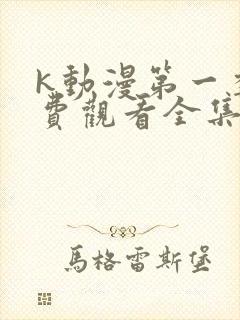 K動漫第一
費觀看全集
馬格雷斯堡